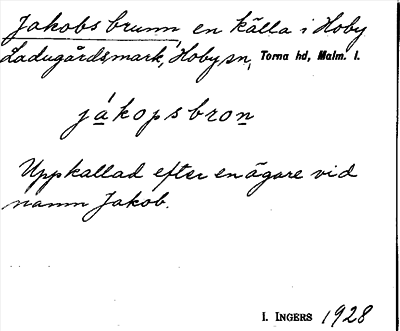 Jakobs brunn en källa i Hoby
Ladugårdsmark, Hoby sn, Torna hd, Malm. l.
jákopsbron
Uppkallad efter en ägare vid
namn Jakob.
I. INGERS 1928